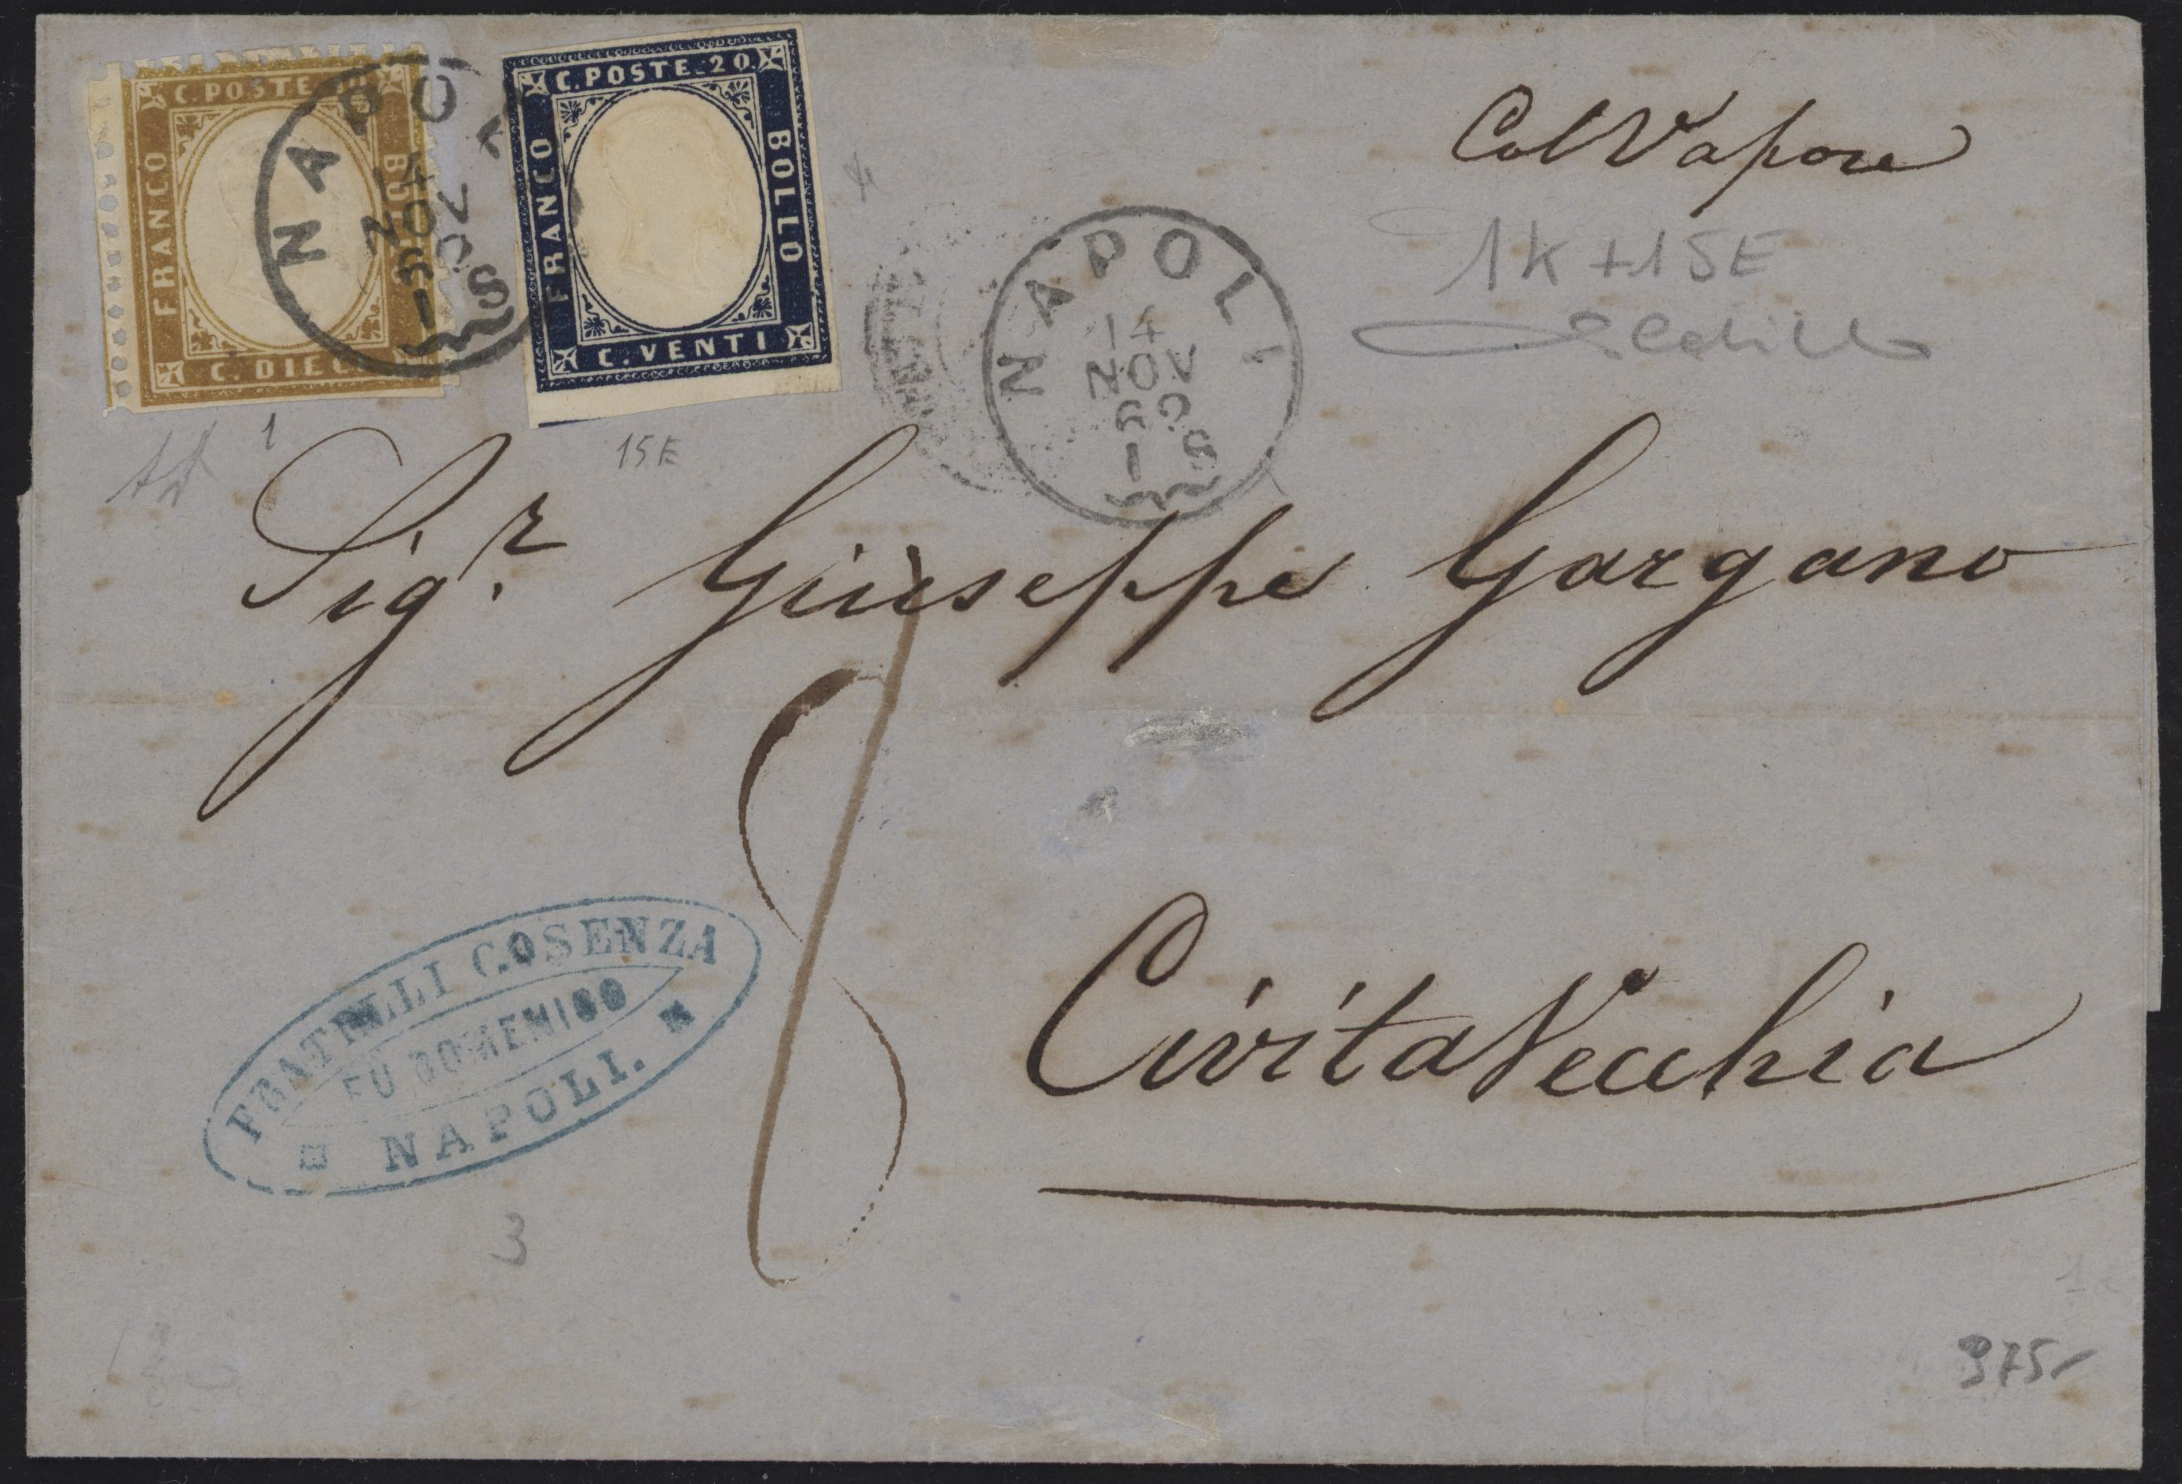 C. POSTE
FRANCO
C. DIECI
C. POSTE. 20.
FRANCO
BOLLO
C. VENTI
NAPOLI
14
NOV
62
1 S
NAPOLI
14
NOV
62
1 S
Col Vapore
1k + 15E
1
15E
Sigr. Giuseppe Gargano
8
Civita Vecchia
FRATELLI COSENZA
FU DOMENICO
NAPOLI.
3
375